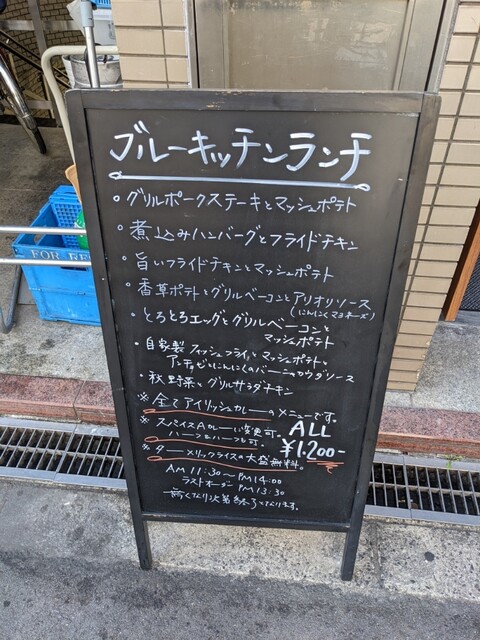 ブルーキッチンランチ
・グリルポークステーキとマッシュポテト
・煮込みハンバーグとフライドチキン
・旨いフライドチキンとマッシュポテト
・香草ポテトとグリルベーコンとアリオリソース
(にんにくマヨネーズ)
・とろとろエッグとグリルベーコンと
マッシュポテト
・自家製フィッシュフライとマッシュポテトと
アンチョビとにんにくのバーニャカウダソース
・秋野菜とグリルサラダチキン
※全てアイリッシュカレーのメニューです。
※スパイスAカレーに変更可。
ハーフ&ハーフも可。
ALL
¥1.200-
※ターメリックライスの大盛無料。
AM 11:30〜PM 14:00
ラストオーダー PM 13:30
無くなり次第終了となります。
FOR RE